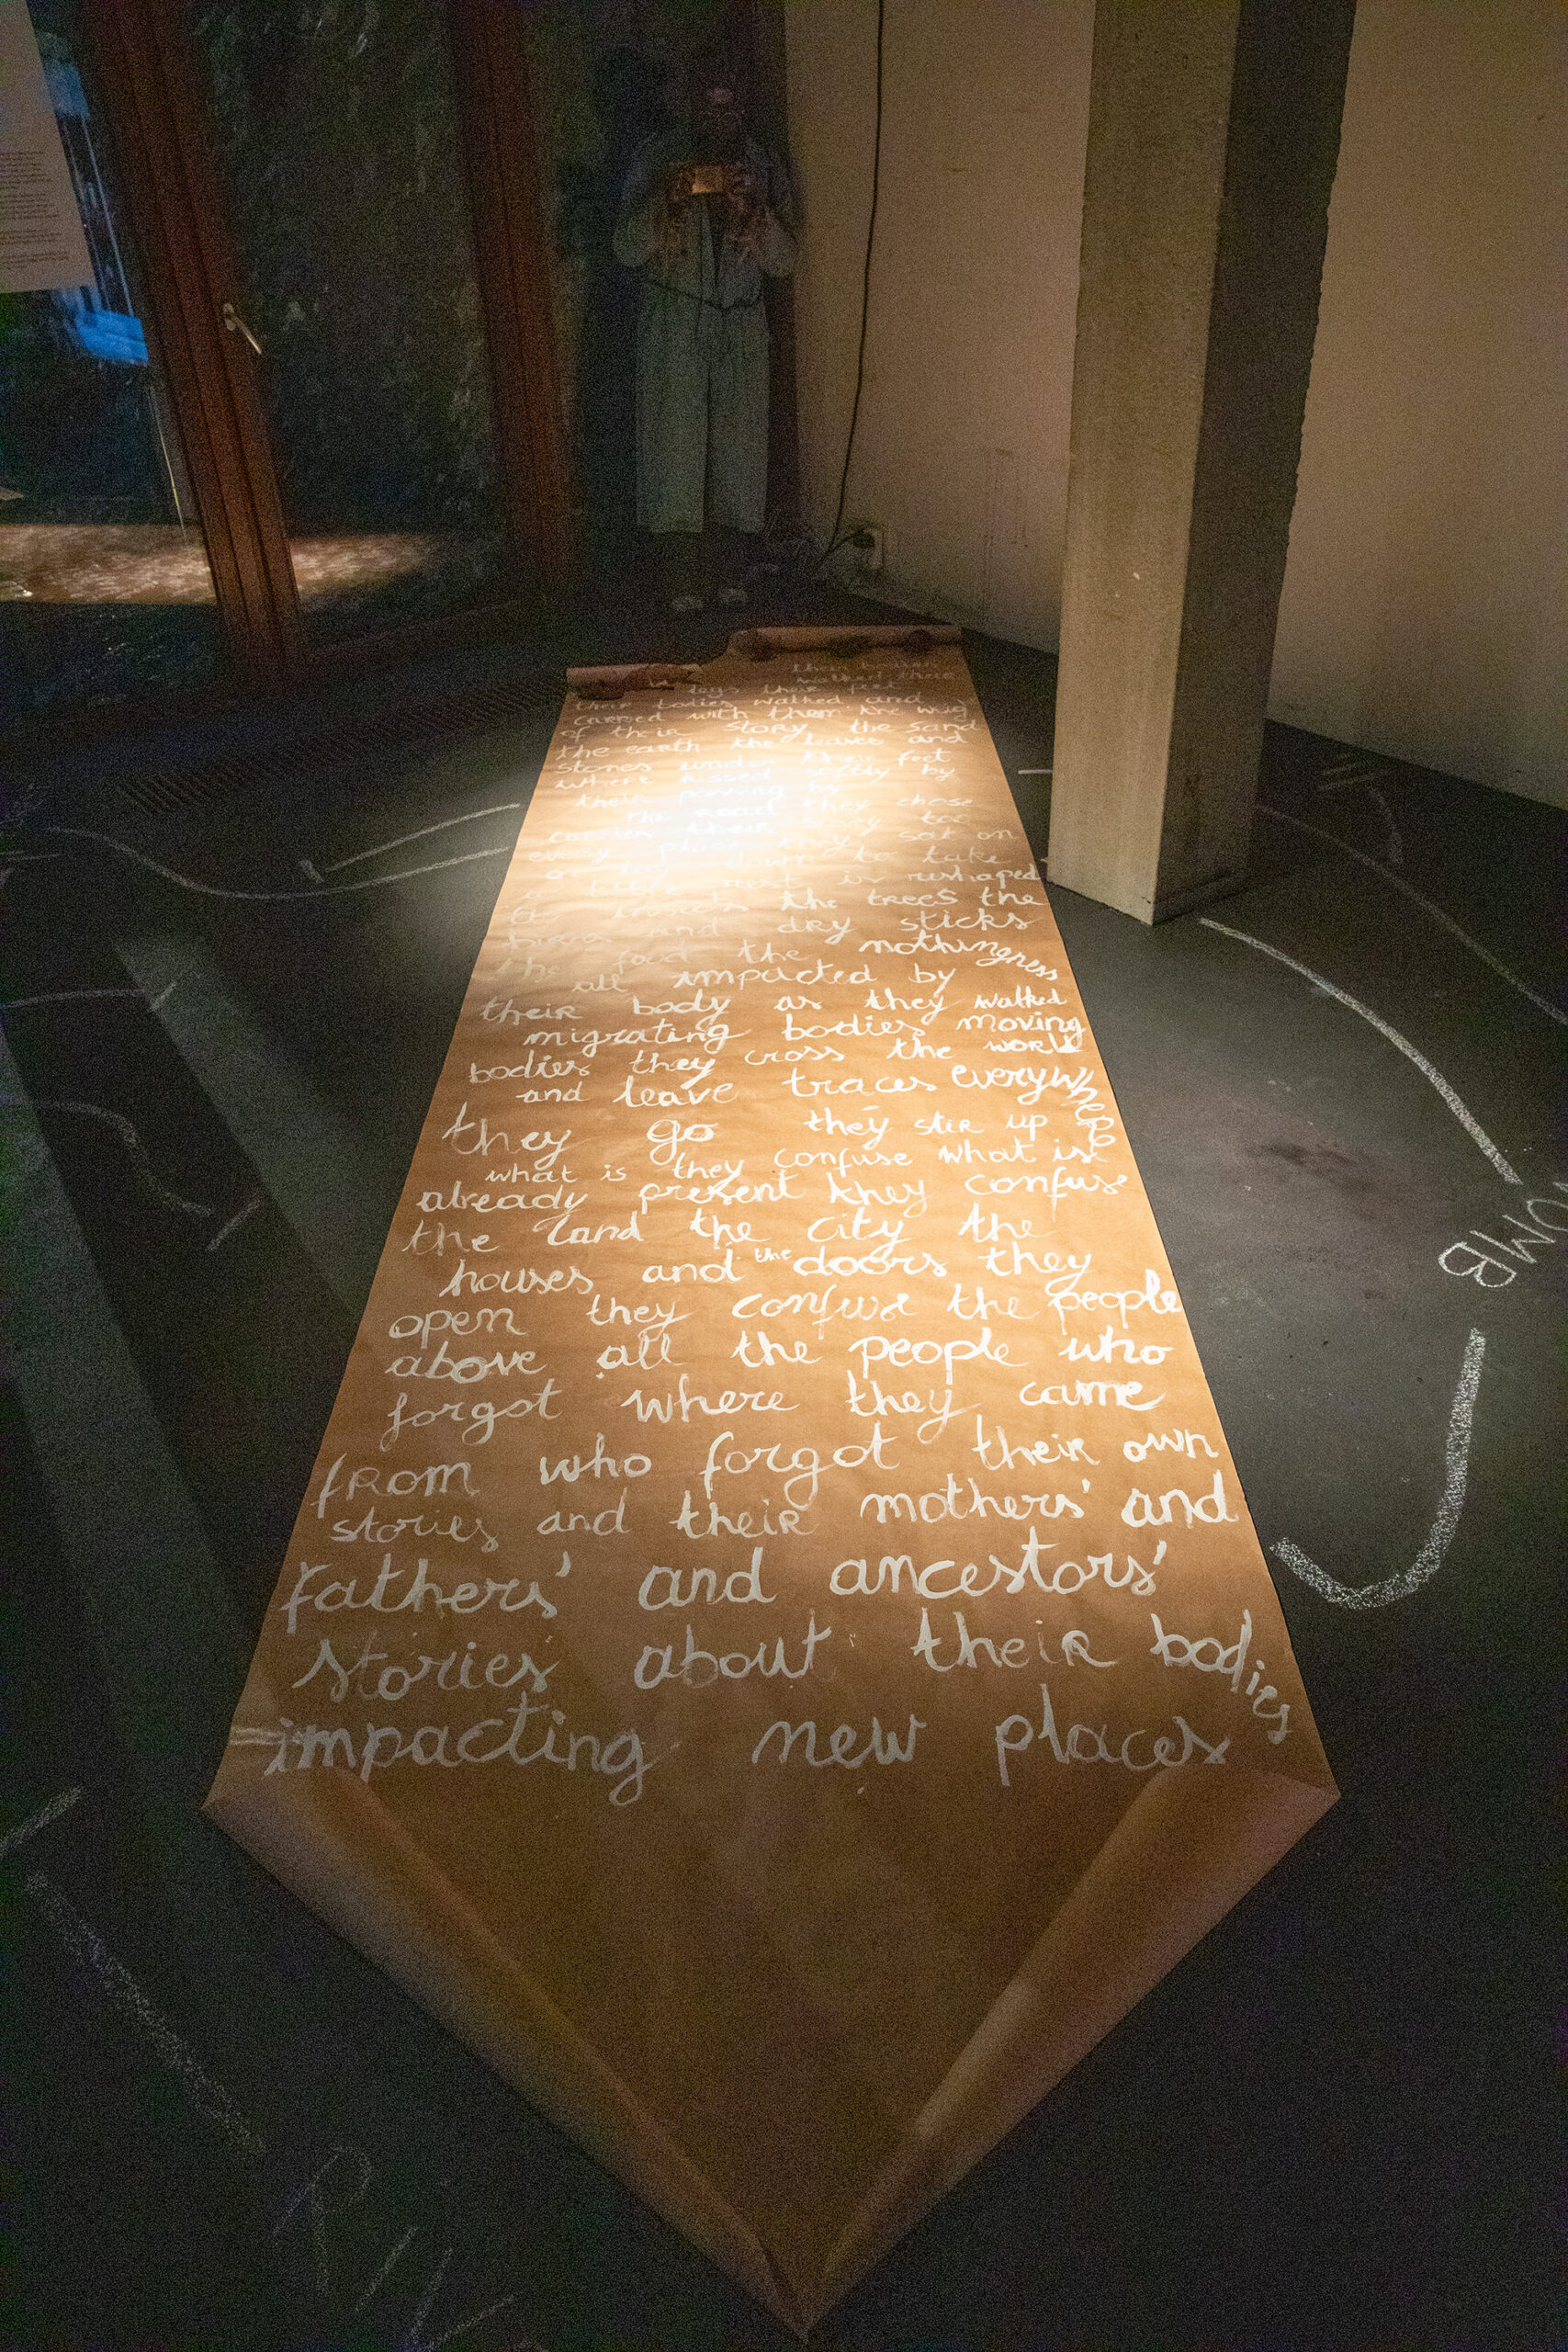 their bodies walked and
carried with them the
of their story the sand
the earth the leaves and
stones under their feet
where kissed softly by
their passing by
the road they chose
carries their story too
every place they sat on
down to take
a little rest is reshaped
the trees the
and dry sticks
the food the nothingness
all impacted by
their body as they walked
migrating bodies moving
bodies they cross the world
and leave traces everywhere
they go they stir up
what is they confuse what is
already present they confuse
the land the city the
houses and the doors they
open they confuse the people
above all the people who
forgot where they came
from who forgot their own
stories and their mothers' and
fathers' and ancestors'
stories about their bodies
impacting new places